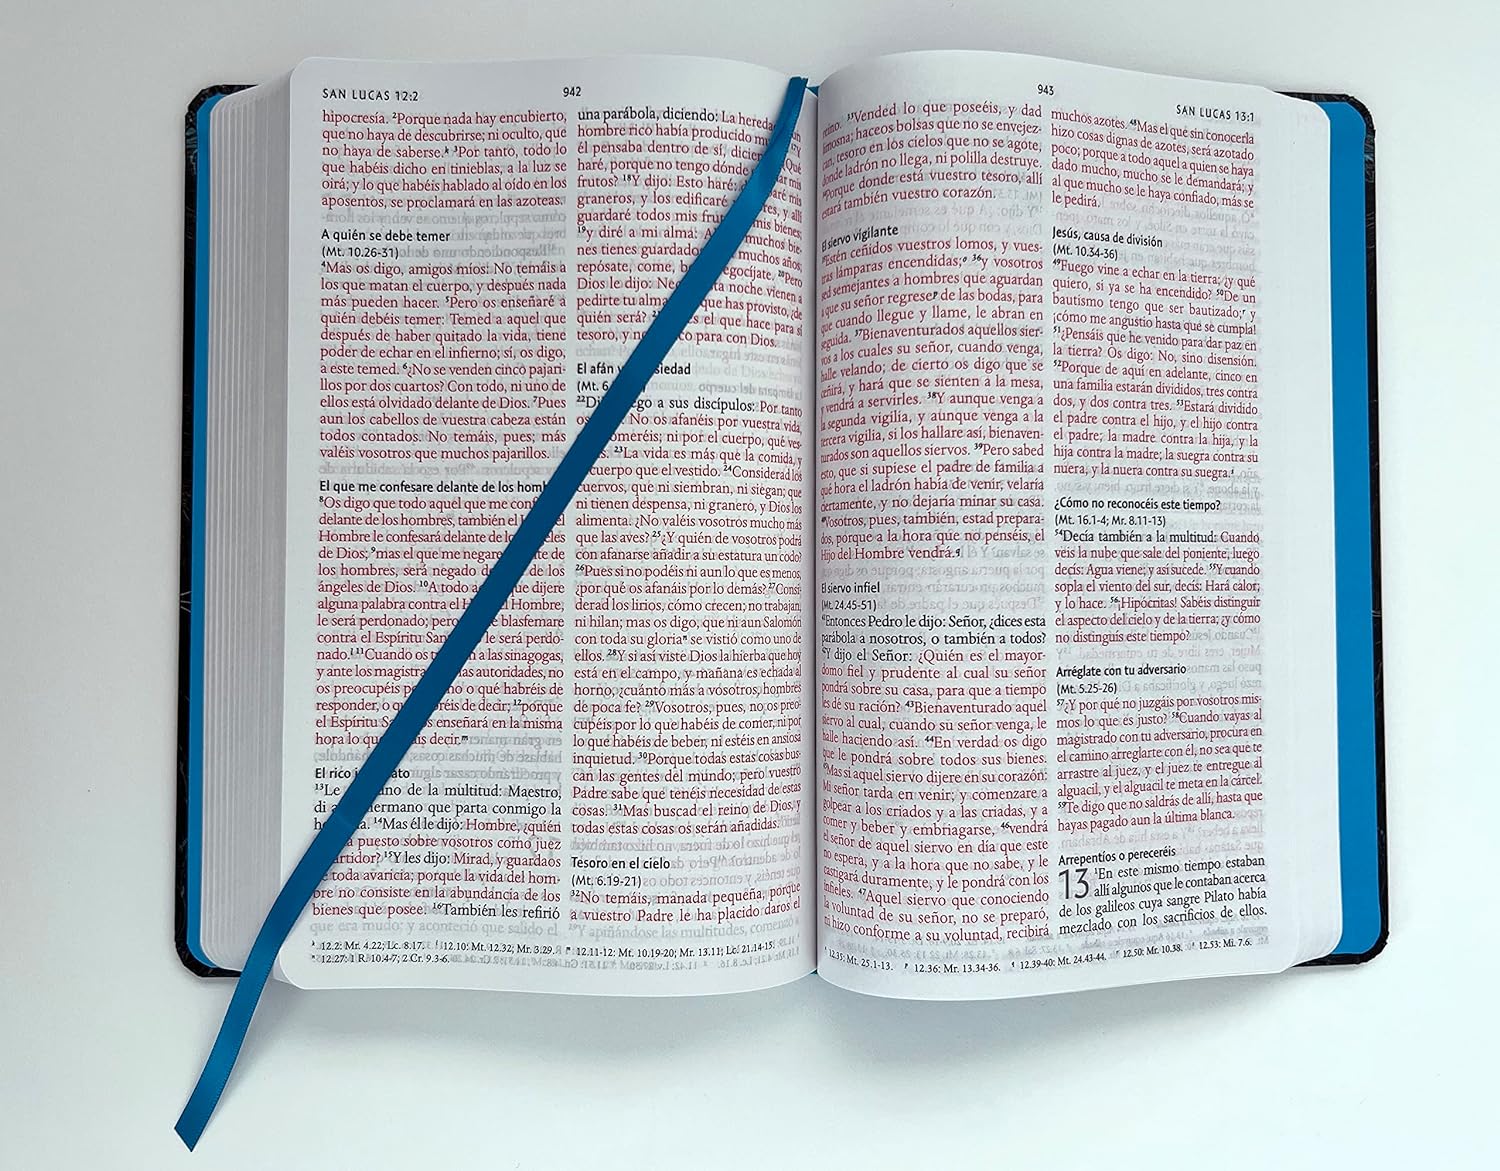 SAN LUCAS 12:2
942
hipocresía. ²Porque nada hay encubierto,
que no haya de descubrirse; ni oculto, que
no haya de saberse. ³Por tanto, todo lo
que habéis dicho en tinieblas, a la luz se
oirá; y lo que habéis hablado al oído en los
aposentos, se proclamará en las azoteas.
A quién se debe temer
(Mt. 10.26-31)
⁴Mas os digo, amigos míos: No temáis a
los que matan el cuerpo, y después nada
más pueden hacer. ⁵Pero os enseñaré a
quién debéis temer: Temed a aquel que
después de haber quitado la vida, tiene
poder de echar en el infierno; sí, os digo,
a este temed. ⁶¿No se venden cinco pajari-
llos por dos cuartos? Con todo, ni uno de
ellos está olvidado delante de Dios. ⁷Pues
aun los cabellos de vuestra cabeza están
todos contados. No temáis, pues; más
valéis vosotros que muchos pajarillos.
El que me confesare delante de los
⁸Os digo que todo aquel que me
delante de los hombres, también el
Hombre le confesará delante de los
de Dios; ⁹mas el que me negare de
los hombres, será negado los
ángeles de Dios. ¹⁰A todo dijere
alguna palabra contra el Hombre,
le será perdonado; pero blasfemare
contra el Espíritu le será perdo-
nado. ¹¹Cuando os a las sinagogas,
y ante los autoridades, no
os preocupéis o qué habréis de
responder, o decir; ¹²porque
el Espíritu enseñará en la misma
hora lo decir.
El rico
¹³Le de la multitud: Maestro,
di a hermano que parta conmigo la
¹⁴Mas él le dijo: Hombre, ¿quién
puesto sobre vosotros como juez
¹⁵Y les dijo: Mirad, y guardaos
toda avaricia; porque la vida del hom-
bre no consiste en la abundancia de los
bienes que posee. ¹⁶También les refirió
una parábola, diciendo: La
hombre rico había producido
él pensaba dentro de sí,
haré, porque no tengo mis
frutos? ¹⁸Y dijo: Esto haré: mis
graneros, y los edificaré y allí
guardaré todos mis mis bienes;
¹⁹y diré a mi alma: muchos bie-
nes tienes muchos años;
repósate, come, regocíjate. ²⁰Pero
Dios le dijo: noche vienen a
pedirte tu que has provisto, ¿de
quién será? es el que hace para sí
tesoro, y no para con Dios.
El afán y
(Mt.
²² a sus discípulos: Por tanto
os No os afanéis por vuestra vida,
comeréis; ni por el cuerpo, qué ves-
²³La vida es más que la comida, y
cuerpo que el vestido. ²⁴Considerad los
cuervos, que ni siembran, ni siegan; que
ni tienen despensa, ni granero, y Dios los
alimenta. ¿No valéis vosotros mucho más
que las aves? ²⁵¿Y quién de vosotros podrá
con afanarse añadir a su estatura un codo?
²⁶Pues si no podéis ni aun lo que es menos,
¿por qué os afanáis por lo demás? ²⁷Consi-
derad los lirios, cómo crecen; no trabajan,
ni hilan; mas os digo, que ni aun Salomón
con toda su gloria se vistió como uno de
ellos. ²⁸Y si así viste Dios la hierba que hoy
está en el campo, y mañana es echada al
horno, ¿cuánto más a vosotros, hombres
de poca fe? ²⁹Vosotros, pues, no os preo-
cupéis por lo que habéis de comer, ni por
lo que habéis de beber, ni estéis en ansiosa
inquietud. ³⁰Porque todas estas cosas bus-
can las gentes del mundo; pero vuestro
Padre sabe que tenéis necesidad de estas
cosas. ³¹Mas buscad el reino de Dios, y
todas estas cosas os serán añadidas.
Tesoro en el cielo
(Mt. 6.19-21)
³²No temáis, manada pequeña, porque
a vuestro Padre le ha placido daros el
12.2: Mr. 4.22; Lc. 8.17. 12.10: Mt. 12.32; Mr. 3.29. 12.11-12: Mt. 10.19-20; Mr. 13.11; Lc. 21.14-15.
12.27: 1 R. 10.4-7; 2 Cr. 9.3-6.
943
SAN LUCAS 13:1
reino. ³³Vended lo que poseéis, y dad
limosna; haceos bolsas que no se envejez-
can, tesoro en los cielos que no se agote,
donde ladrón no llega, ni polilla destruye.
³⁴Porque donde está vuestro tesoro, allí
estará también vuestro corazón.
El siervo vigilante
³⁵Estén ceñidos vuestros lomos, y vues-
tras lámparas encendidas; ³⁶y vosotros
sed semejantes a hombres que aguardan
a que su señor regrese de las bodas, para
que cuando llegue y llame, le abran en
seguida. ³⁷Bienaventurados aquellos sier-
vos a los cuales su señor, cuando venga,
halle velando; de cierto os digo que se
ceñirá, y hará que se sienten a la mesa,
y vendrá a servirles. ³⁸Y aunque venga a
la segunda vigilia, y aunque venga a la
tercera vigilia, si los hallare así, bienaven-
turados son aquellos siervos. ³⁹Pero sabed
esto, que si supiese el padre de familia a
qué hora el ladrón había de venir, velaría
ciertamente, y no dejaría minar su casa.
⁴⁰Vosotros, pues, también, estad prepara-
dos, porque a la hora que no penséis, el
Hijo del Hombre vendrá.
El siervo infiel
(Mt. 24.45-51)
⁴¹Entonces Pedro le dijo: Señor, ¿dices esta
parábola a nosotros, o también a todos?
⁴²Y dijo el Señor: ¿Quién es el mayor-
domo fiel y prudente al cual su señor
pondrá sobre su casa, para que a tiempo
les dé su ración? ⁴³Bienaventurado aquel
siervo al cual, cuando su señor venga, le
halle haciendo así. ⁴⁴En verdad os digo
que le pondrá sobre todos sus bienes.
⁴⁵Mas si aquel siervo dijere en su corazón:
Mi señor tarda en venir; y comenzare a
golpear a los criados y a las criadas, y a
comer y beber y embriagarse, ⁴⁶vendrá
el señor de aquel siervo en día que este
no espera, y a la hora que no sabe, y le
castigará duramente, y le pondrá con los
infieles. ⁴⁷Aquel siervo que conociendo
la voluntad de su señor, no se preparó,
ni hizo conforme a su voluntad, recibirá
muchos azotes. ⁴⁸Mas el que sin conocerla
hizo cosas dignas de azotes, será azotado
poco; porque a todo aquel a quien se haya
dado mucho, mucho se le demandará; y
al que mucho se le haya confiado, más se
le pedirá.
Jesús, causa de división
(Mt. 10.34-36)
⁴⁹Fuego vine a echar en la tierra; ¿y qué
quiero, si ya se ha encendido? ⁵⁰De un
bautismo tengo que ser bautizado; y
¡cómo me angustio hasta que se cumpla!
⁵¹¿Pensáis que he venido para dar paz en
la tierra? Os digo: No, sino disensión.
⁵²Porque de aquí en adelante, cinco en
una familia estarán divididos, tres contra
dos, y dos contra tres. ⁵³Estará dividido
el padre contra el hijo, y el hijo contra
el padre; la madre contra la hija, y la
hija contra la madre; la suegra contra su
nuera, y la nuera contra su suegra.
¿Cómo no reconocéis este tiempo?
(Mt. 16.1-4; Mr. 8.11-13)
⁵⁴Decía también a la multitud: Cuando
veis la nube que sale del poniente, luego
decís: Agua viene; y así sucede. ⁵⁵Y cuando
sopla el viento del sur, decís: Hará calor;
y lo hace. ⁵⁶¡Hipócritas! Sabéis distinguir
el aspecto del cielo y de la tierra; ¿y cómo
no distinguís este tiempo?
Arréglate con tu adversario
(Mt. 5.25-26)
⁵⁷¿Y por qué no juzgáis por vosotros mis-
mos lo que es justo? ⁵⁸Cuando vayas al
magistrado con tu adversario, procura en
el camino arreglarte con él, no sea que te
arrastre al juez, y el juez te entregue al
alguacil, y el alguacil te meta en la cárcel.
⁵⁹Te digo que no saldrás de allí, hasta que
hayas pagado aun la última blanca.
Arrepentíos o pereceréis
13 ¹En este mismo tiempo estaban
allí algunos que le contaban acerca
de los galileos cuya sangre Pilato había
mezclado con los sacrificios de ellos.
12.35: Mt. 25.1-13. 12.36: Mr. 13.34-36. 12.39-40: Mt. 24.43-44. 12.50: Mr. 10.38. 12.53: Mi. 7.6.